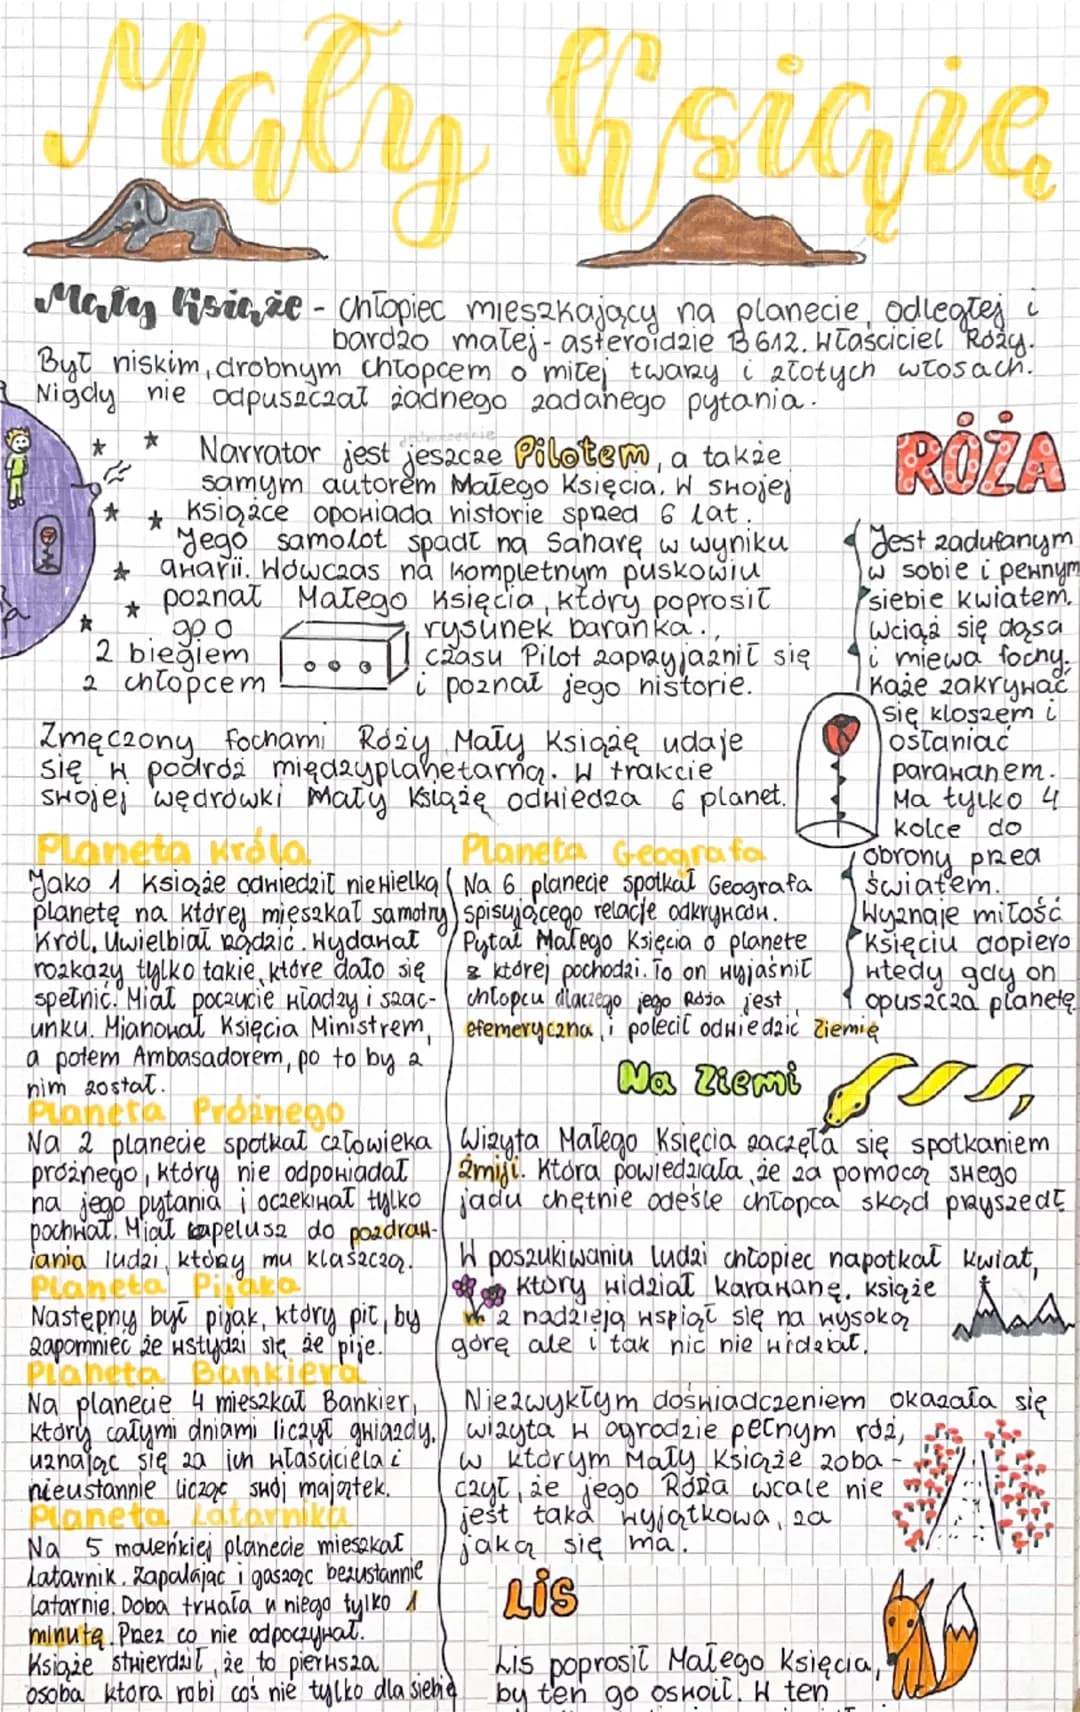 Mały Książę
Mały Książe - chłopiec mieszkający na planecie, odległej i
bardzo małej - asteroidzie B 612. Właściciel Róży.
Był niskim, drobnym chłopcem o miłej twarzy i złotych włosach.
Nigdy nie odpuszczał żadnego zadanego pytania.
Narrator jest jeszcze Pilotem, a także
samym autorem Małego Księcia. W swojej
książce opowiada historie sprzed 6 lat.
Jego samolot spadł na Saharę w wyniku
awarii. Wówczas na kompletnym puskowiu
poznał Małego Księcia, który poprosił
go o rysunek baranka.
z biegiem czasu Pilot zaprzyjaźnił się
z chłopcem i poznał jego historie.
RÓŻA
Jest zadufanym
w sobie i pewnym
siebie kwiatem.
Wciąż się dąsa
i miewa fochy.
Każe zakrywać
się kloszem i
osłaniać
parawanem.
Ma tylko 4
kolce do
obrony przed
światem.
Wyznaje miłość
Księciu dopiero
wtedy gdy on
opuszcza planetę.
Zmęczony fochami Róży Mały Książę udaje
się w podróż międzyplanetarną. W trakcie
swojej wędrówki Mały Książę odwiedza 6 planet.
Planeta Króla
Jako 1 Książe odwiedził niewielką
planetę na której mieszkał samotny
Król. Uwielbiał rządzić. Wydawał
rozkazy tylko takie, które dało się
spełnić. Miał poczucie władzy i szac-
unku. Mianował Księcia Ministrem,
a potem Ambasadorem, po to by z
nim został.
Planeta Próżnego
Na 2 planecie spotkał człowieka
próżnego, który nie odpowiadał
na jego pytania i oczekiwał tylko
pochwał. Miał kapelusz do pozdraw-
iania ludzi, którzy mu klaszczą.
Planeta Pijaka
Następny był pijak, który pił, by
zapomnieć że wstydzi się że pije.
Planeta Bankiera
Na planecie 4 mieszkał Bankier,
który całymi dniami liczył gwiazdy,
uznając się za ich właściciela i
nieustannie licząc swój majątek.
Planeta Latarnika
Na 5 maleńkiej planecie mieszkał
Latarnik. Zapalając i gasząc bezustannie
Latarnie. Doba trwała u niego tylko 1
minutę. Przez co nie odpoczywał.
Książe stwierdził, że to pierwsza
osoba która robi coś nie tylko dla siebie
Planeta Geografa
Na 6 planecie spotkał Geografa
spisującego relacje odkrywców.
Pytał Małego Księcia o planete
z której pochodzi. To on wyjaśnił
chłopcu dlaczego jego Róża jest
efemeryczna, i polecił odwiedzić Ziemię
Na Ziemi
Wizyta Małego Księcia zaczęła się spotkaniem
żmiji. Która powiedziała, że za pomocą swego
jadu chętnie odeśle chłopca skąd przyszedł
W poszukiwaniu ludzi chłopiec napotkał kwiat,
który widział karawanę. książe
z nadzieją wspiął się na wysoką
górę ale i tak nic nie widział.
Niezwykłym doświadczeniem okazała się
wizyta w ogrodzie pełnym róż,
w którym Mały Książe zoba-
czył, że jego Róża wcale nie
jest taka wyjątkowa, za
jaką się ma.
Lis
Lis poprosił Małego Księcia,
by ten go oswoił. W ten